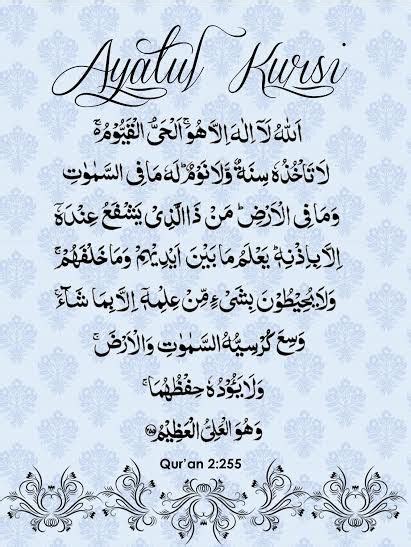 Ayatul Kursi
اَللهُ لَآ اِلٰهَ اِلَّا هُوَ ۚ اَلْحَيُّ الْقَيُّوْمُ ۚ
لَا تَاْخُذُهٗ سِنَةٌ وَّلَا نَوْمٌ ؕ لَهٗ مَا فِى السَّمٰوٰتِ
وَمَا فِى الْاَرْضِ ؕ مَنْ ذَا الَّذِىْ يَشْفَعُ عِنْدَهٗۤ
اِلَّا بِاِذْنِهٖ ؕ يَعْلَمُ مَا بَيْنَ اَيْدِيْهِمْ وَمَا خَلْفَهُمْ ۚ
وَلَا يُحِيْطُوْنَ بِشَىْءٍ مِّنْ عِلْمِهٖۤ اِلَّا بِمَا شَآءَ ۚ
وَسِعَ كُرْسِيُّهُ السَّمٰوٰتِ وَالْاَرْضَ ۚ
وَلَا يَؤُدُهٗ حِفْظُهُمَا ۚ
وَهُوَ الْعَلِىُّ الْعَظِيْمُ ﴿۲۵۵﴾
Qur'an 2:255